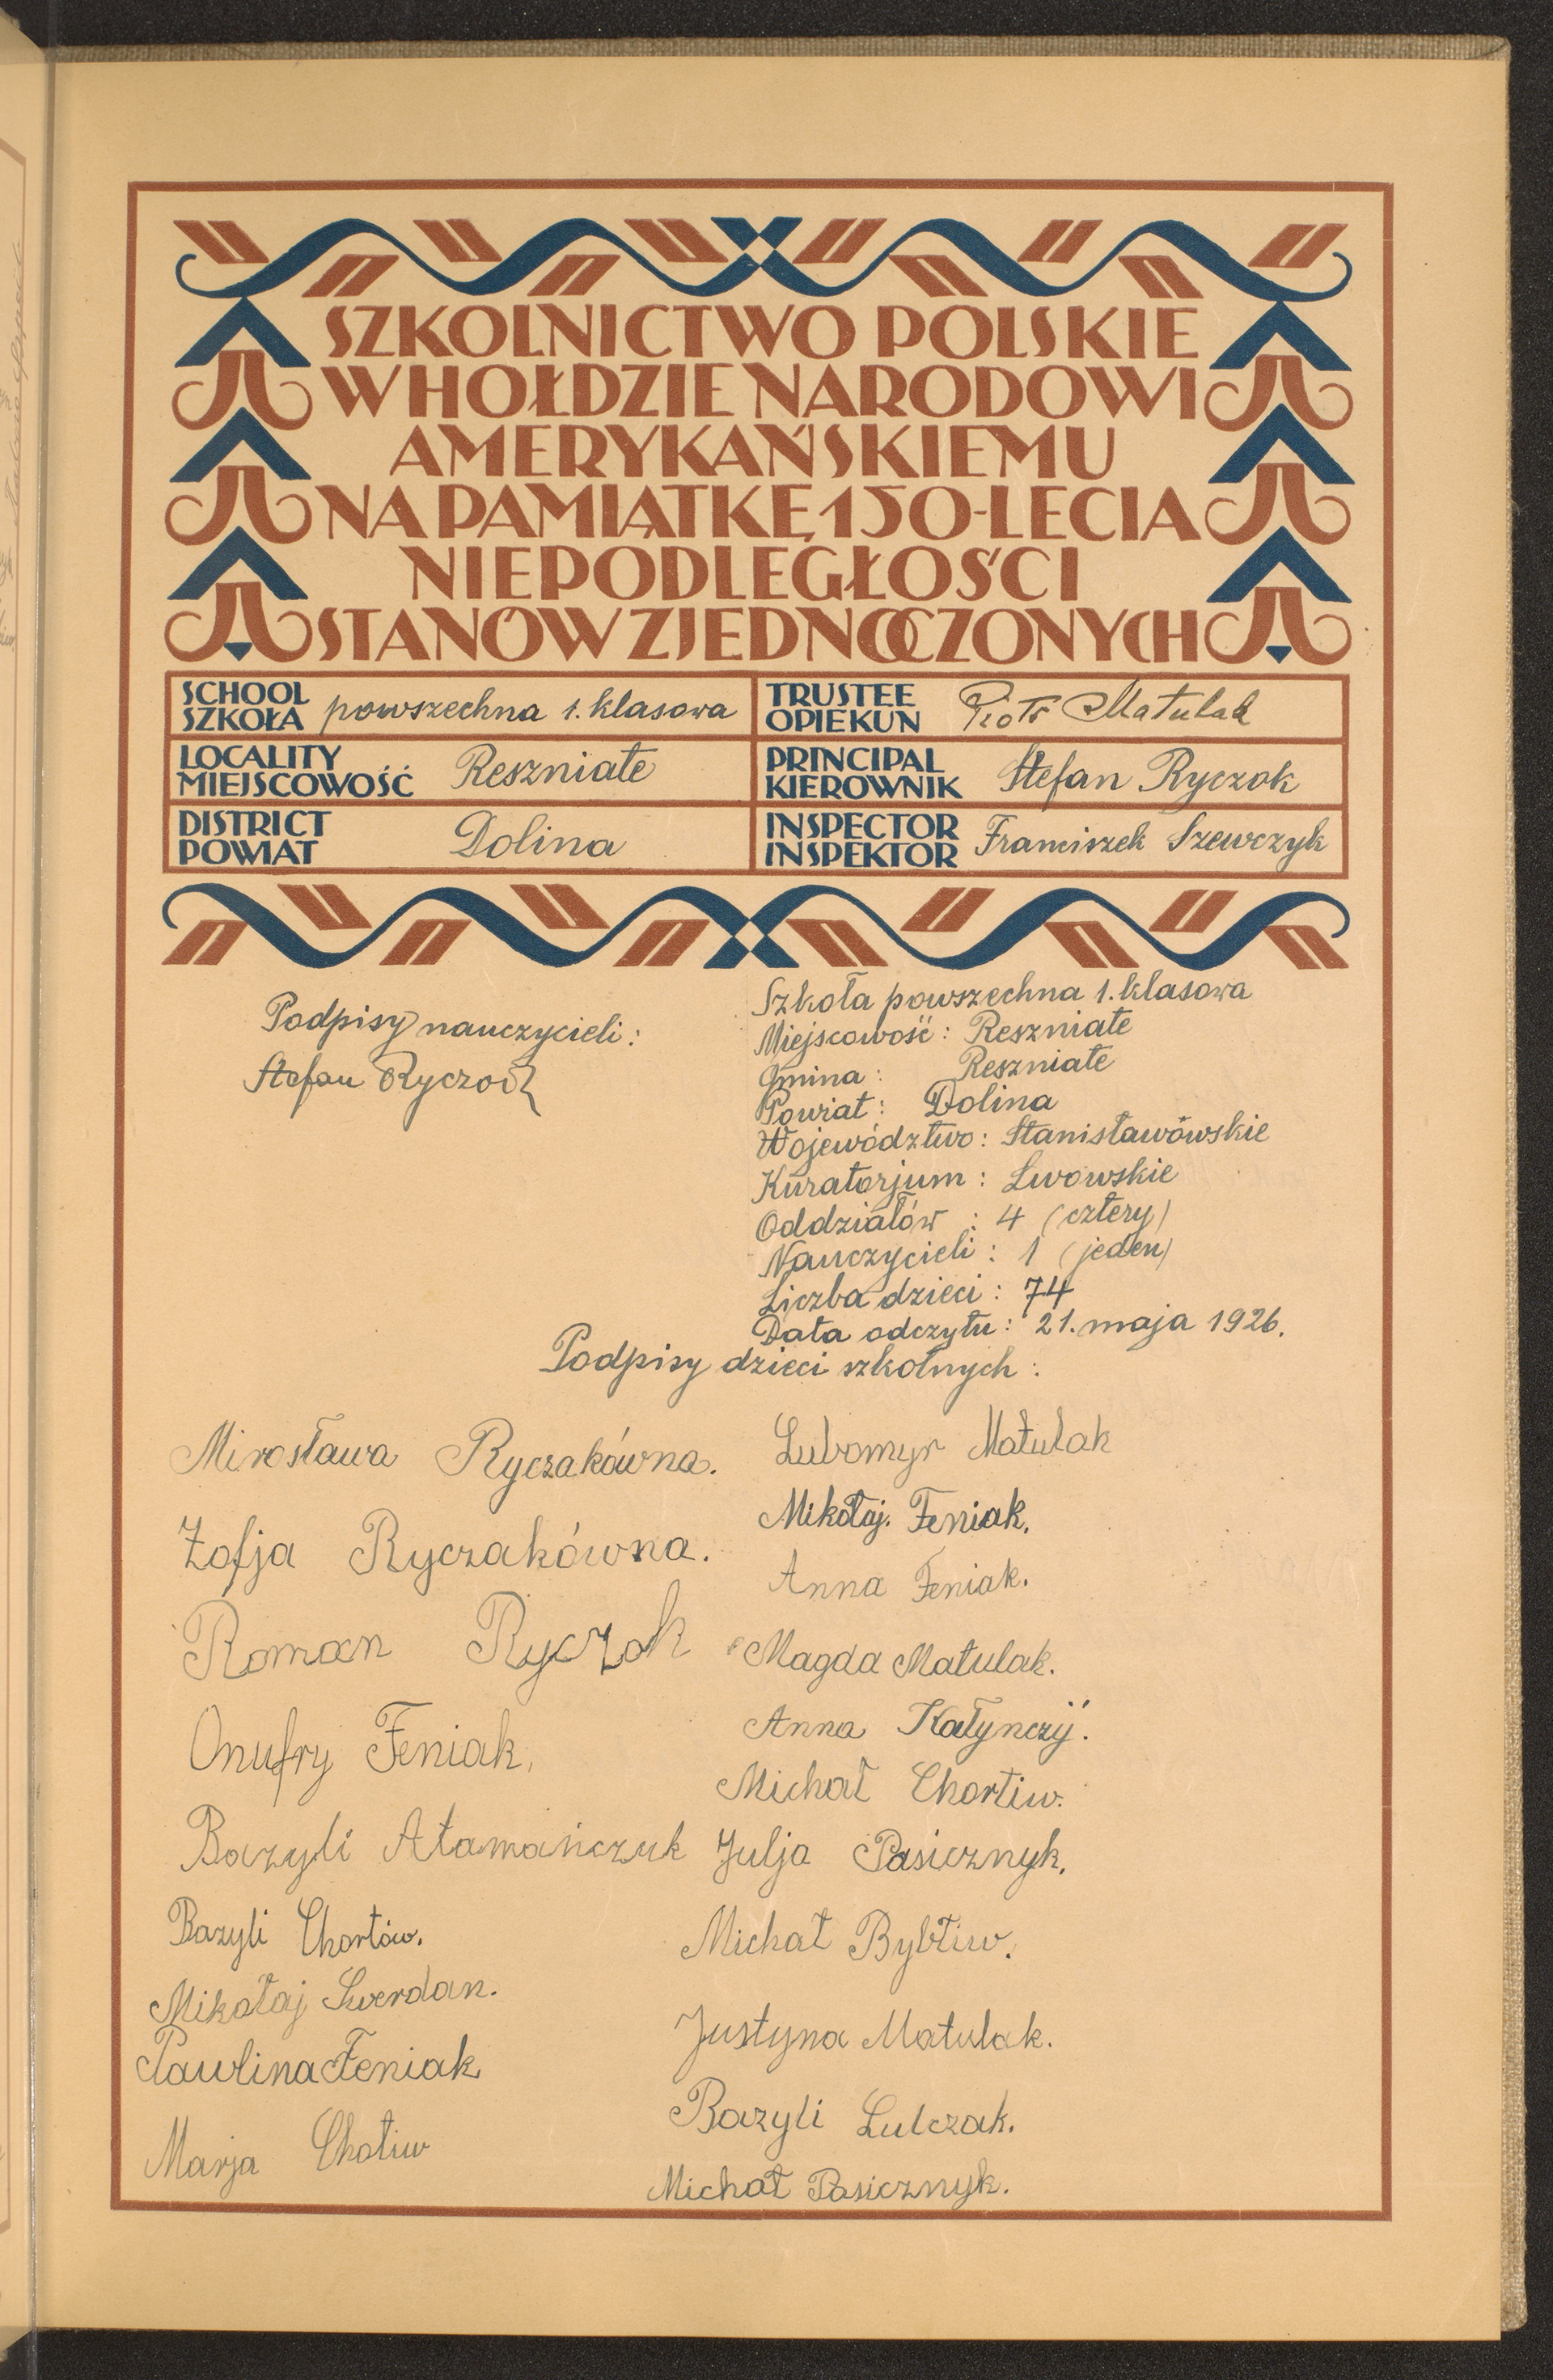 SZKOLNICTWO POLSKIE
W HOŁDZIE NARODOWI
AMERYKAŃSKIEMU
NA PAMIĄTKĘ 150-LECIA
NIEPODLEGŁOŚCI
STANÓW ZJEDNOCZONYCH
SCHOOL
SZKOŁA powszechna 1. klasowa
TRUSTEE
OPIEKUN Piotr Matulak
LOCALITY
MIEJSCOWOŚĆ Reszniate
PRINCIPAL
KIEROWNIK Stefan Ryczok
DISTRICT
POWIAT Dolina
INSPECTOR
INSPEKTOR Franciszek Szewczyk
Podpisy nauczycieli:
Stefan Ryczok
Szkoła powszechna 1. klasowa
Miejscowość: Reszniate
Gmina: Reszniate
Powiat: Dolina
Województwo: Stanisławówskie
Kuratorjum: Lwowskie
Oddziałów: 4 (cztery)
Nauczycieli: 1 (jeden)
Liczba dzieci: 74
Data odczytu: 21. maja 1926.
Podpisy dzieci szkolnych:
Mirosława Ryczakówna.
Zofja Ryczakówna.
Roman Ryczok
Onufry Feniak.
Bazyli Atamańczuk
Bazyli Chortów.
Mikołaj Swerdan.
Paulina Feniak
Marja Chotiw
Lubomyr Matulak
Mikołaj. Feniak.
Anna Feniak.
Magda Matulak.
Anna Kałynczÿ.
Michał Chortiw.
Julja Pasicznyk.
Michał Bybtiw.
Justyna Matulak.
Bazyli Lulczak.
Michał Pasicznyk.